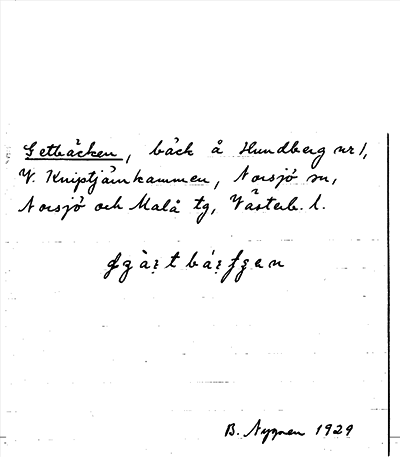 Getbäcken, bäck å Hundberg nr 1,
V. Kniptjärnkammen, Norsjö sn,
Norsjö och Malå tg, Västerb. l.
B. Nygren 1929